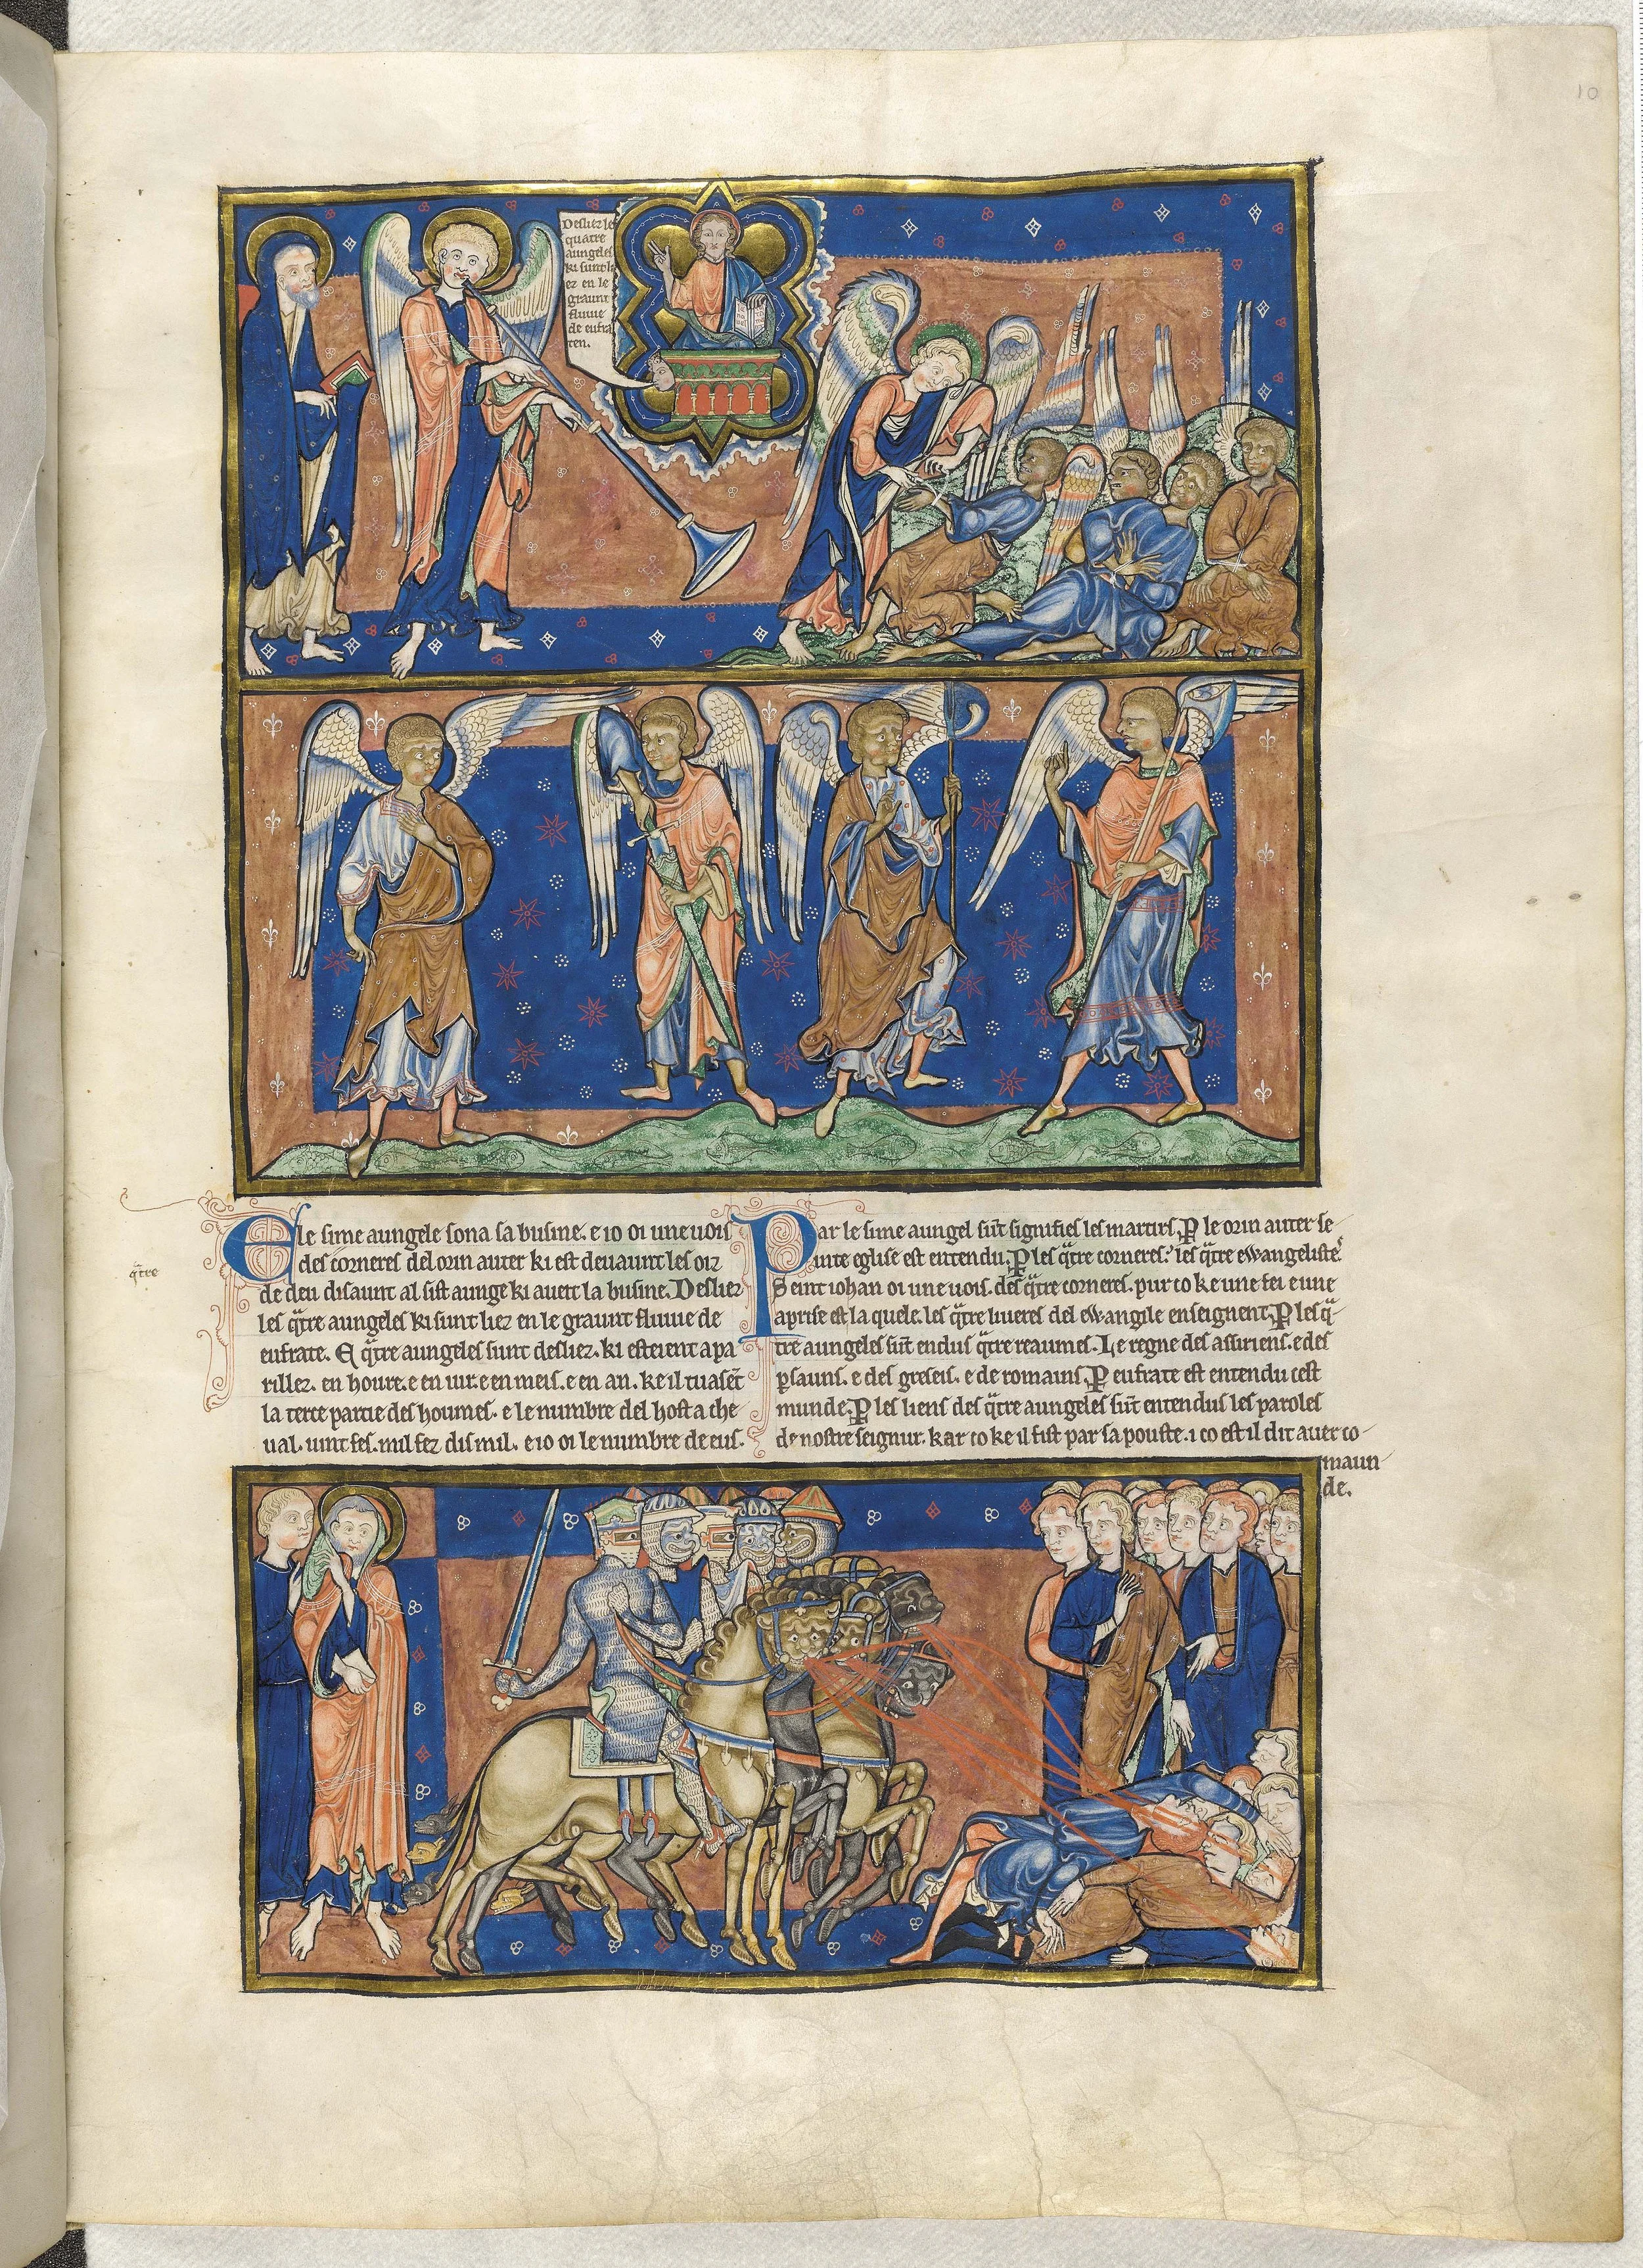 10
Desliez les
quatre
aungeles
ki sunt li
ez en le
graunt
fluuie
de eufra
ten.
E le sime aungele sona sa busine. e io oi une uois
des corneres del orin auter ki est deuaunt les oiz
de deu disaunt al sist aunge ki aueit la busine. Desliez
les q̄tre aungeles ki sunt liez en le graunt fluuie de
eufrate. E q̄tre aungeles sunt desliez. ki esteient apa
rillez. en houre. e en iur. e en meis. e en an. ke il tuasẽt
la terce partie des houmes. e le numbre del host a che
ual. uint fes. mil fez dis mil. e io oi le numbre de eus.
q̄tre
Par le sime aungel sũt signifies les martirs. P̱ le orin auter se-
inte eglise est entendu. P̱ les q̄tre corneres: les q̄tre ewangeliste.
Seint iohan oi une uois. des q̄tre corneres. pur co ke une fei e une
aprise est la quele. les q̄tre liueres del ewangile enseignent. P̱ les q̄-
tre aungeles sũt endus q̄tre reaumes. Le regne des assiriens. e des
p̱sauns. e des greseis. e de romains. P̱ eufrate est entendu cest
munde. P̱ les liens des q̄tre aungeles sũt entendus les paroles
de nostre seignur. kar co ke il fist par sa pouste. i co est il dit auer co-
maun-
de.